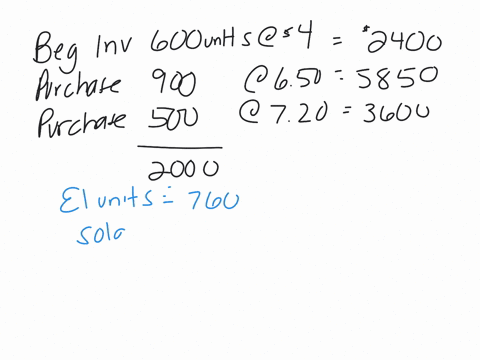 Beg Inv 600 units @ $4 = $2400
Purchase 900 @ 6.50 = 5850
Purchase 500 @ 7.20 = 3600
2000
EI units = 760
Sold